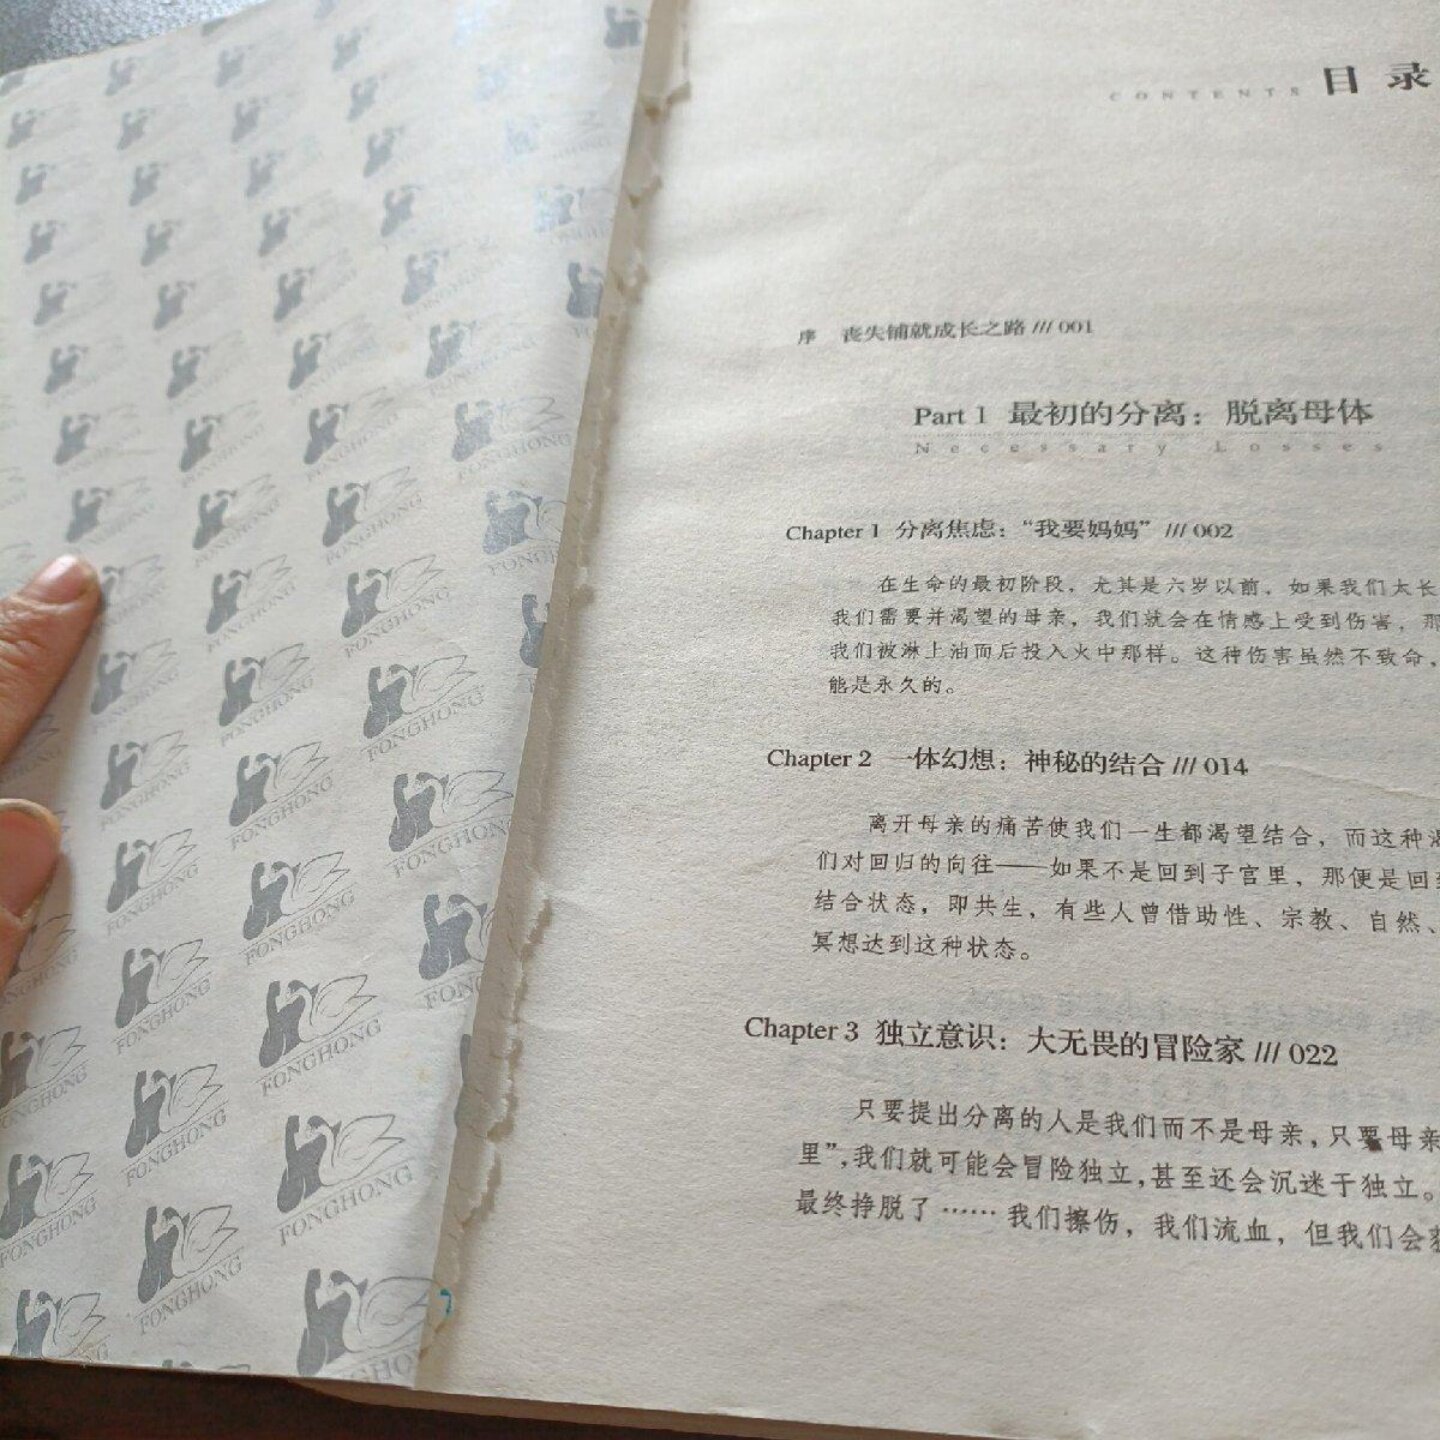 目录
CONTENTS
序 丧失铺就成长之路 /// 001
Part 1 最初的分离：脱离母体
Necessary Losses
Chapter 1 分离焦虑：“我要妈妈” /// 002
在生命的最初阶段，尤其是六岁以前，如果我们太长
我们需要并渴望的母亲，我们就会在情感上受到伤害，那
我们被淋上油而后投入火中那样。这种伤害虽然不致命，
能是永久的。
Chapter 2 一体幻想：神秘的结合 /// 014
离开母亲的痛苦使我们一生都渴望结合，而这种渴
们对回归的向往——如果不是回到子宫里，那便是回到
结合状态，即共生，有些人曾借助性、宗教、自然、
冥想达到这种状态。
Chapter 3 独立意识：大无畏的冒险家 /// 022
只要提出分离的人是我们而不是母亲，只要母亲
里”，我们就可能会冒险独立，甚至还会沉迷于独立。
最终挣脱了……我们擦伤，我们流血，但我们会获
FONGHONG